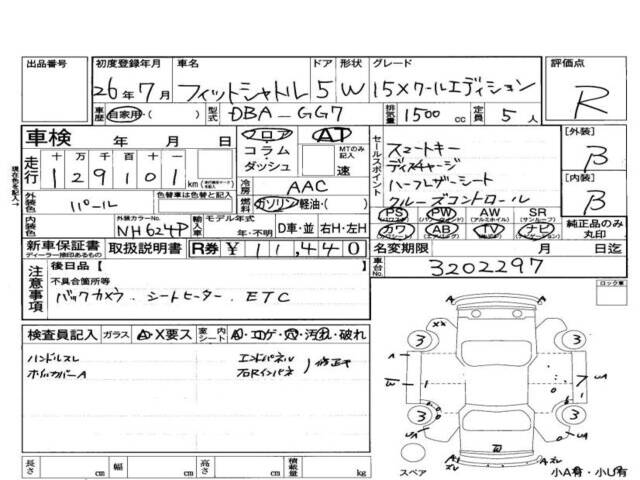 出品番号 初度登録年月 車名 ドア 形状 グレード 評価点
26年7月 フィットシャトル 5 W 15Xクールエディション R
車歴 自家用・( ) 型式 DBA-GG7 排気量 1500 cc 定員 5 人
車検 年 月 日 フロア AT 【外装】
コラム・ MTのみ記入 スマートキー B
走行 十 万 千 百 十 一 ダッシュ 速 セールスポイント ディスチャージ
129101 km 冷房 AAC ハーフレザーシート 【内装】
外装色 パール 色替車は色替と記入 ガソリン・軽油・( ) クルーズコントロール B
内装色 外装カラーNo. NH624P 輸入車 モデル年式 年・不明 D車・並 右H・左H PS PW AW SR
カワ AB TV ナビ 純正品のみ丸印
新車保証書 取扱説明書 R券 ¥11,440 名変期限 月 日迄
ディーラー捺印あるもの
注意事項 後日品【 】 車台No. 3202297
不具合箇所等 ロック車
バックカメラ．シートヒーター．ETC
検査員記入 ガラス A・X要ス 室内シート
ハンドルスレ エンドパネル 修正キ
A
長さ cm 幅 cm 高さ cm 積載量 kg
スペア 小A有・小U有